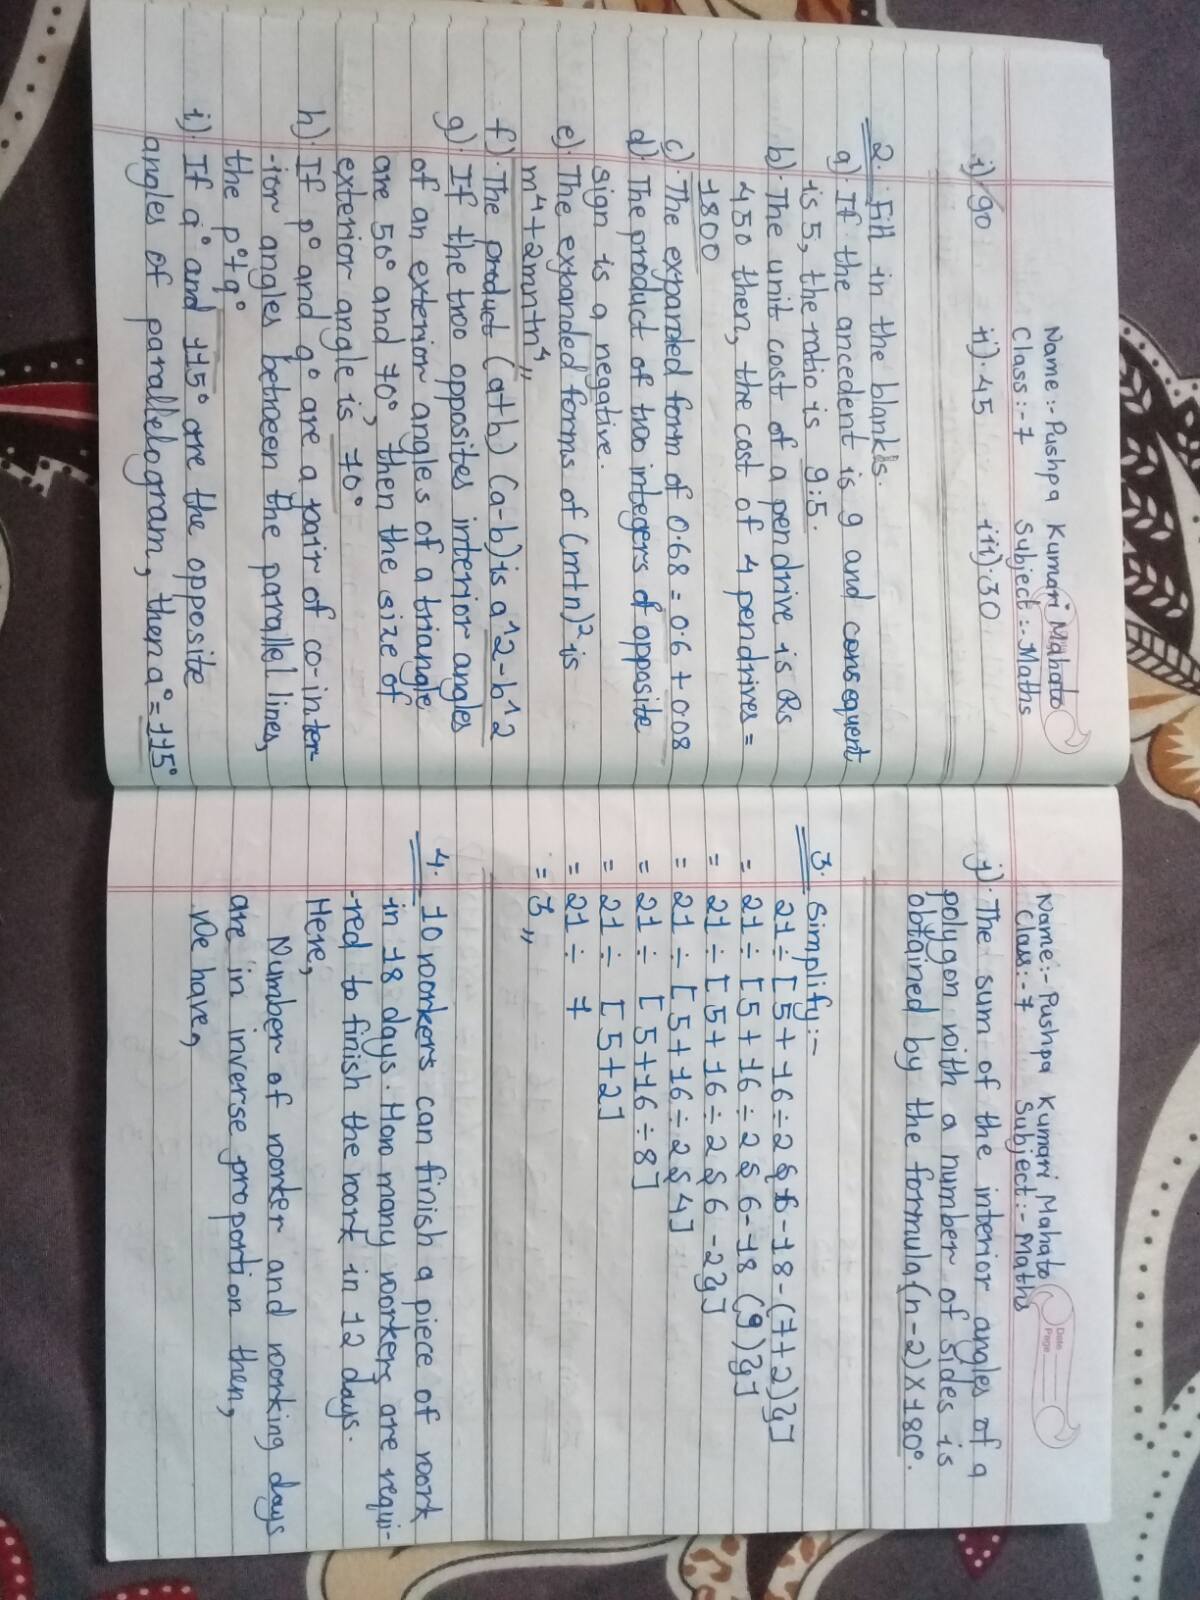 Name:- Pushpa Kumari Mahato
Class:- 7 Subject:- Maths
i) 90 ii). 45 iii). 30
2. Fill in the blanks.
a). If the ancedent is 9 and consequent
is 5, the ratio is 9:5.
b). The unit cost of a pendrive is Rs
450 then, the cost of 4 pendrives =
1800
c). The expanded form of 0.68 = 0.6 + 0.08
d). The product of two integers of opposite
sign is a negative.
e). The expanded forms of (m+n)² is
m⁴+2mn+n⁴,,
f). The product (a+b) (a-b) is a^2-b^2
g). If the two opposites interior angles
of an exterior angles of a triangle
are 50° and 70°, then the size of
exterior angle is 70°
h). If p° and q° are a pair of co-inter-
-ior angles between the parallel lines,
the p°+q°
i). If a° and 115° are the opposite
angles of parallelogram, then a° = 115°
Name:- Pushpa Kumari Mahato
Class:- 7 Subject:- Maths
Date
Page
j). The sum of the interior angles of a
polygon with a number of sides is
obtained by the formula (n-2)×180°.
3. Simplify:-
21÷[5+16÷2{6-18-(7+2)}]
= 21÷[5+16÷2{6-18(9)}]
= 21÷[5+16÷2{6-2}]
= 21÷[5+16÷2{4]
= 21÷[5+16÷8]
= 21÷[5+2]
= 21÷7
= 3,,
4. 10 workers can finish a piece of work
in 18 days. How many workers are requi-
-red to finish the work in 12 days.
Here,
Number of worker and working days
are in inverse proportion then,
We have,